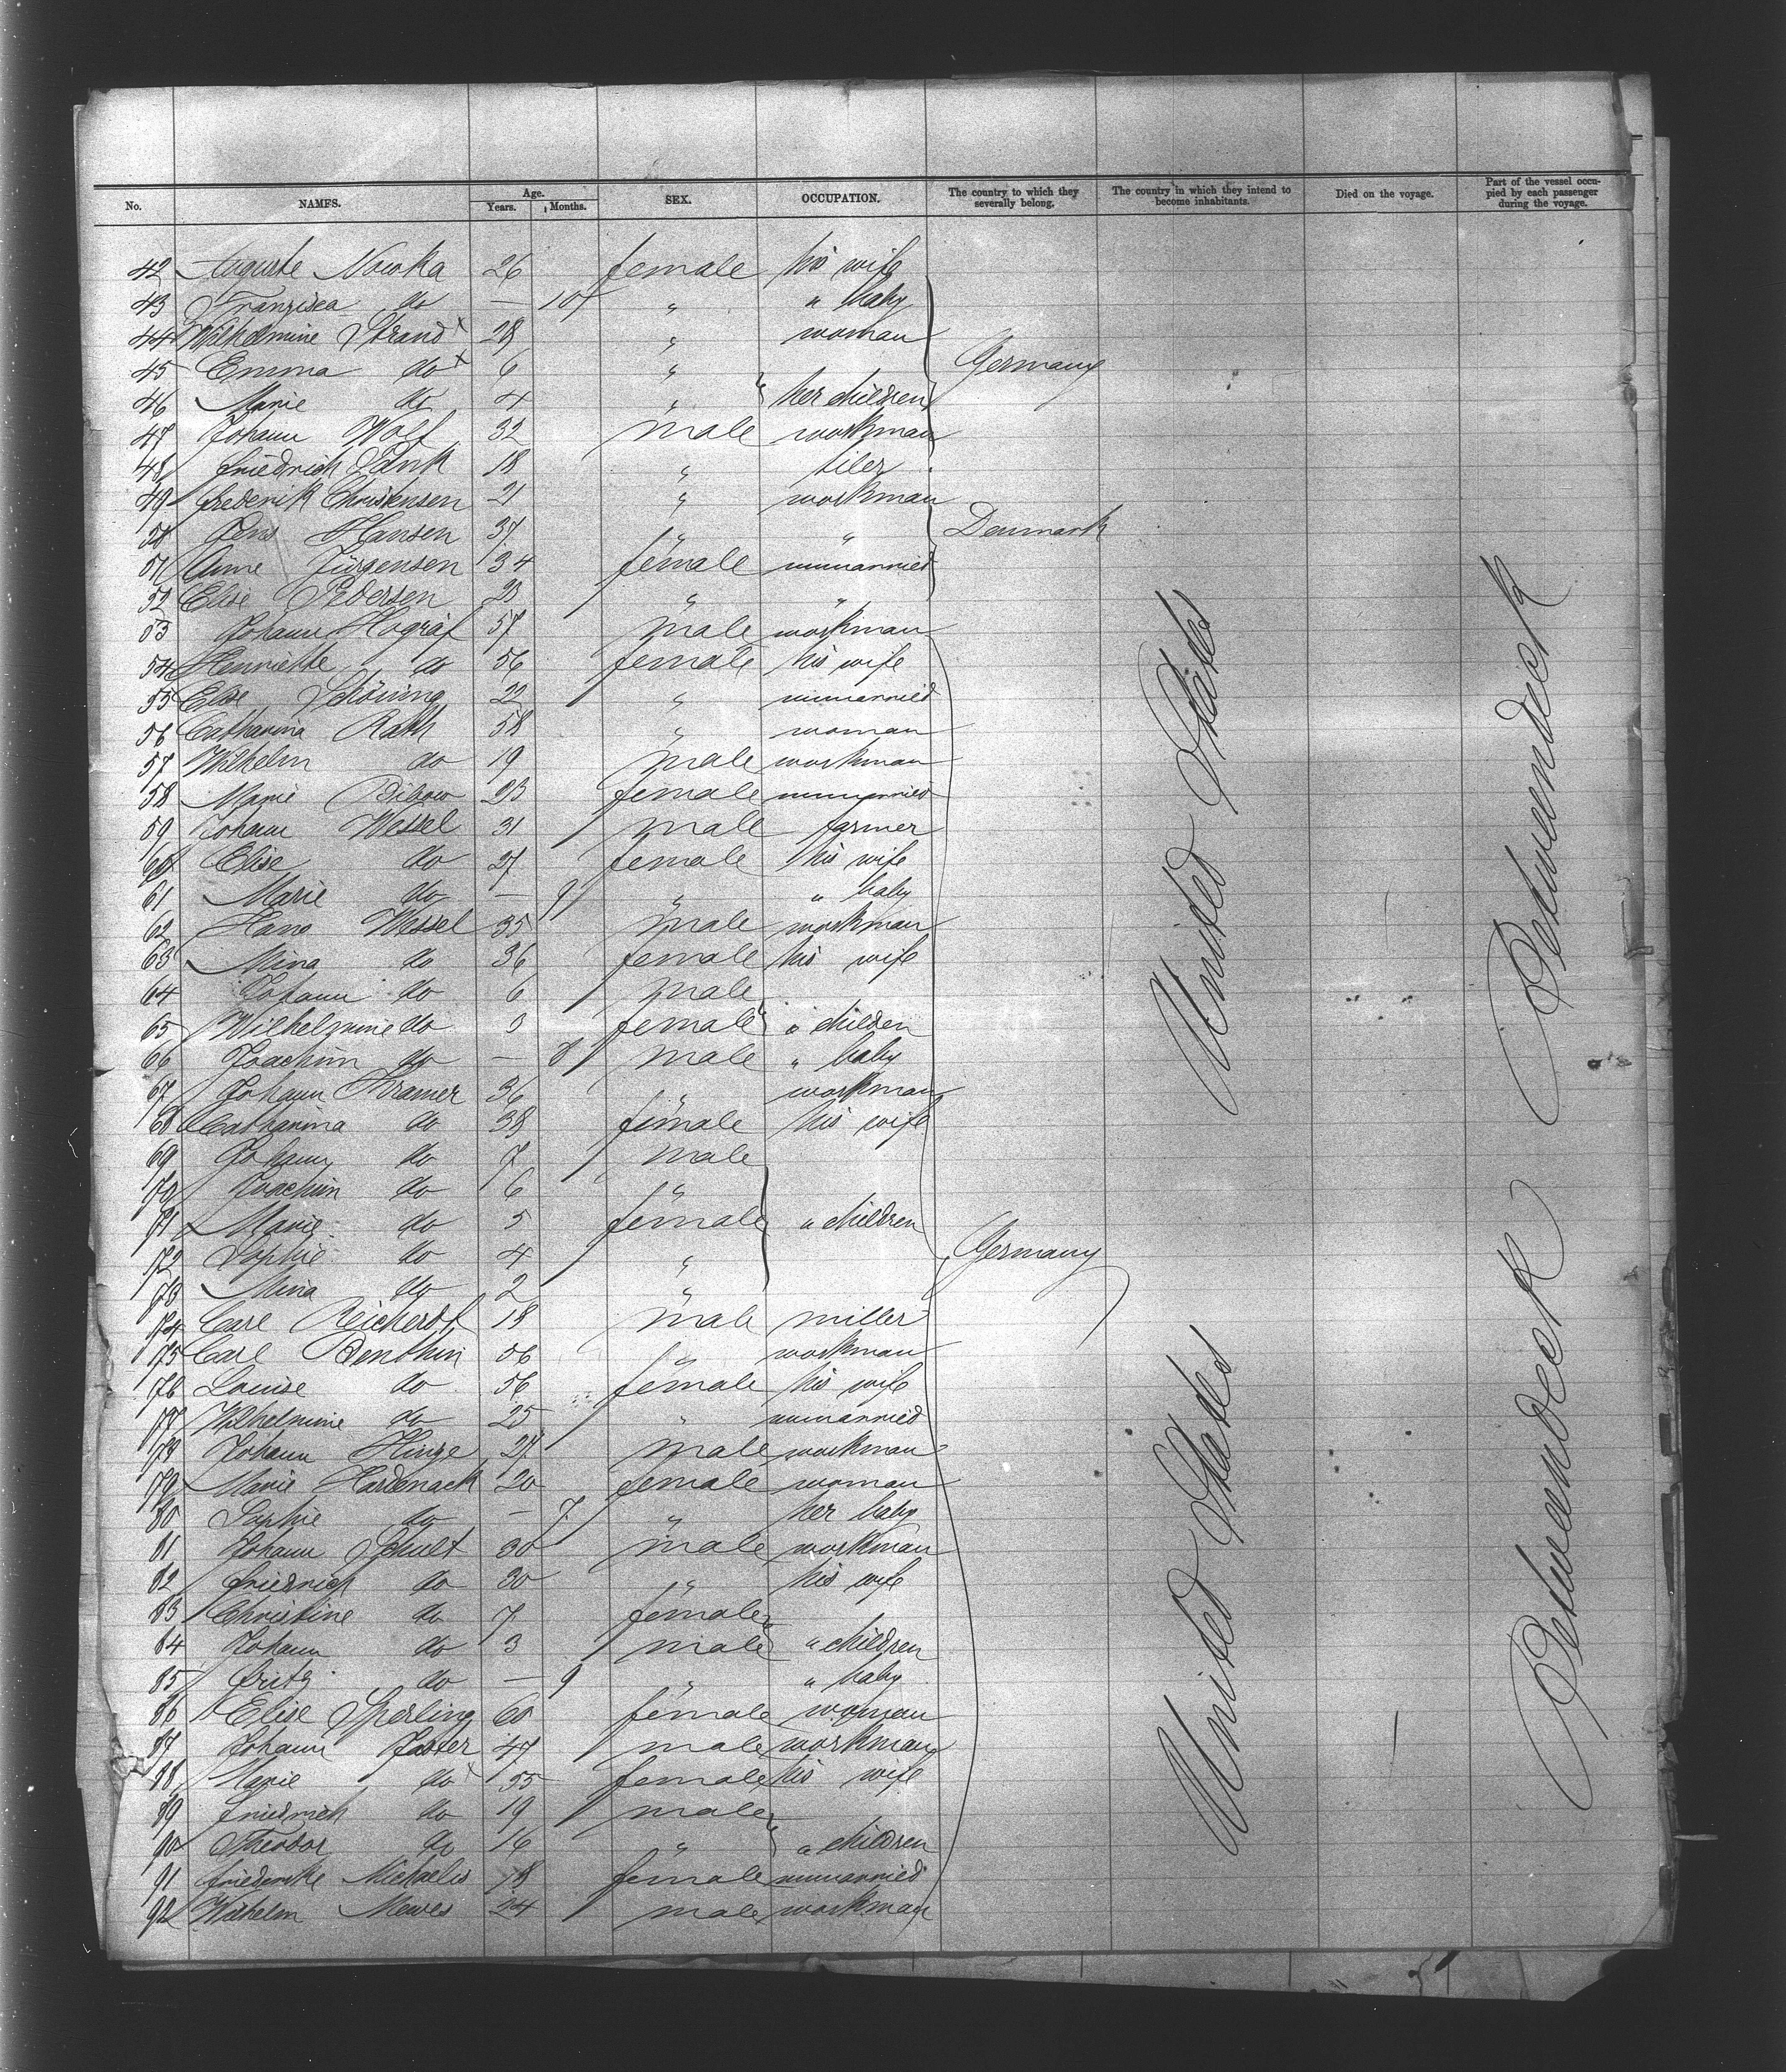 No. NAMES. Age. Years. Months. SEX. OCCUPATION. The country to which they severally belong. The country in which they intend to become inhabitants. Died on the voyage. Part of the vessel occupied by each passenger during the voyage.
42 Auguste Nowka 26 female his wife
43 Franzisca do — 10 " " baby
44 Wilhelmine Strand 28 " woman
45 Emma do 6 " Germany
46 Marie do 4 " her children
47 Johann Wolf 32 male workman
48 Friedrich Pank 18 " tiler
49 Frederik Christensen 21 " workman
50 Jens Hansen 37 " " Denmark
51 Anne Jürgensen 34 female unmarried
52 Elise Pedersen 23 " "
53 Johann Hograf 57 male workman
54 Henriette do 56 female his wife
55 Elise Schöning 22 " unmarried
56 Catharina Rath 58 " woman
57 Wilhelm do 19 male workman
58 Marie Bibow 23 female unmarried
59 Johann Wessel 31 male farmer
60 Elise do 27 female his wife
61 Marie do — 9 " " baby
62 Hans Wessel 35 male workman
63 Mina do 36 female his wife
64 Johann do 6 male
65 Wilhelmine do 3 female " children
66 Joachim do — 8 male " baby
67 Johann Kramer 36 " workman
68 Catharina do 38 female his wife
69 Johann do 7 male
70 Joachim do 6 "
71 Marie do 5 female " children
72 Sophie do 4 " Germany
73 Mina do 2 "
74 Carl Reicherdt 18 male miller
75 Carl Benthin 56 " workman
76 Louise do 56 female his wife
77 Wilhelmine do 25 " unmarried
78 Johann Hinze 27 male workman
79 Marie Hardenack 20 female woman
80 Sophie do — 7 " her baby
81 Johann Schult 30 male workman
82 Friedrich do 30 " his wife
83 Christine do 7 female
84 Johann do 3 male " children
85 Fritz do — 9 " " baby
86 Elise Sperling 60 female woman
87 Johann Faster 47 male workman
88 Marie do 55 female his wife
89 Friedrich do 19 male
90 Theodor do 16 " " children
91 Friederike Michaelis 18 female unmarried
92 Wilhelm Mewes 24 male workman
United States
United States
Betweendeck
Betweendeck